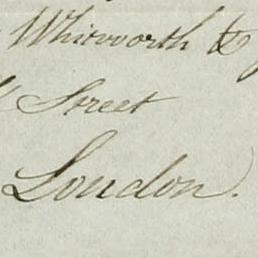 Whitworth &
Street
London.